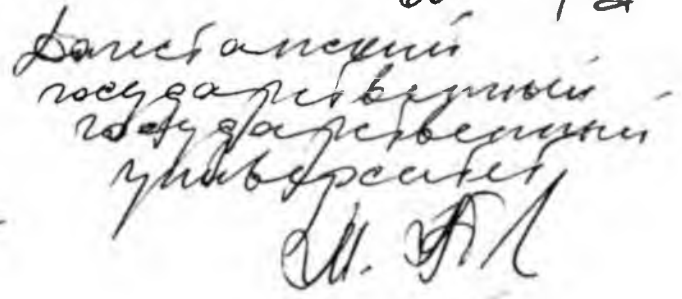 Дагестанский
государственный
государственный
университет